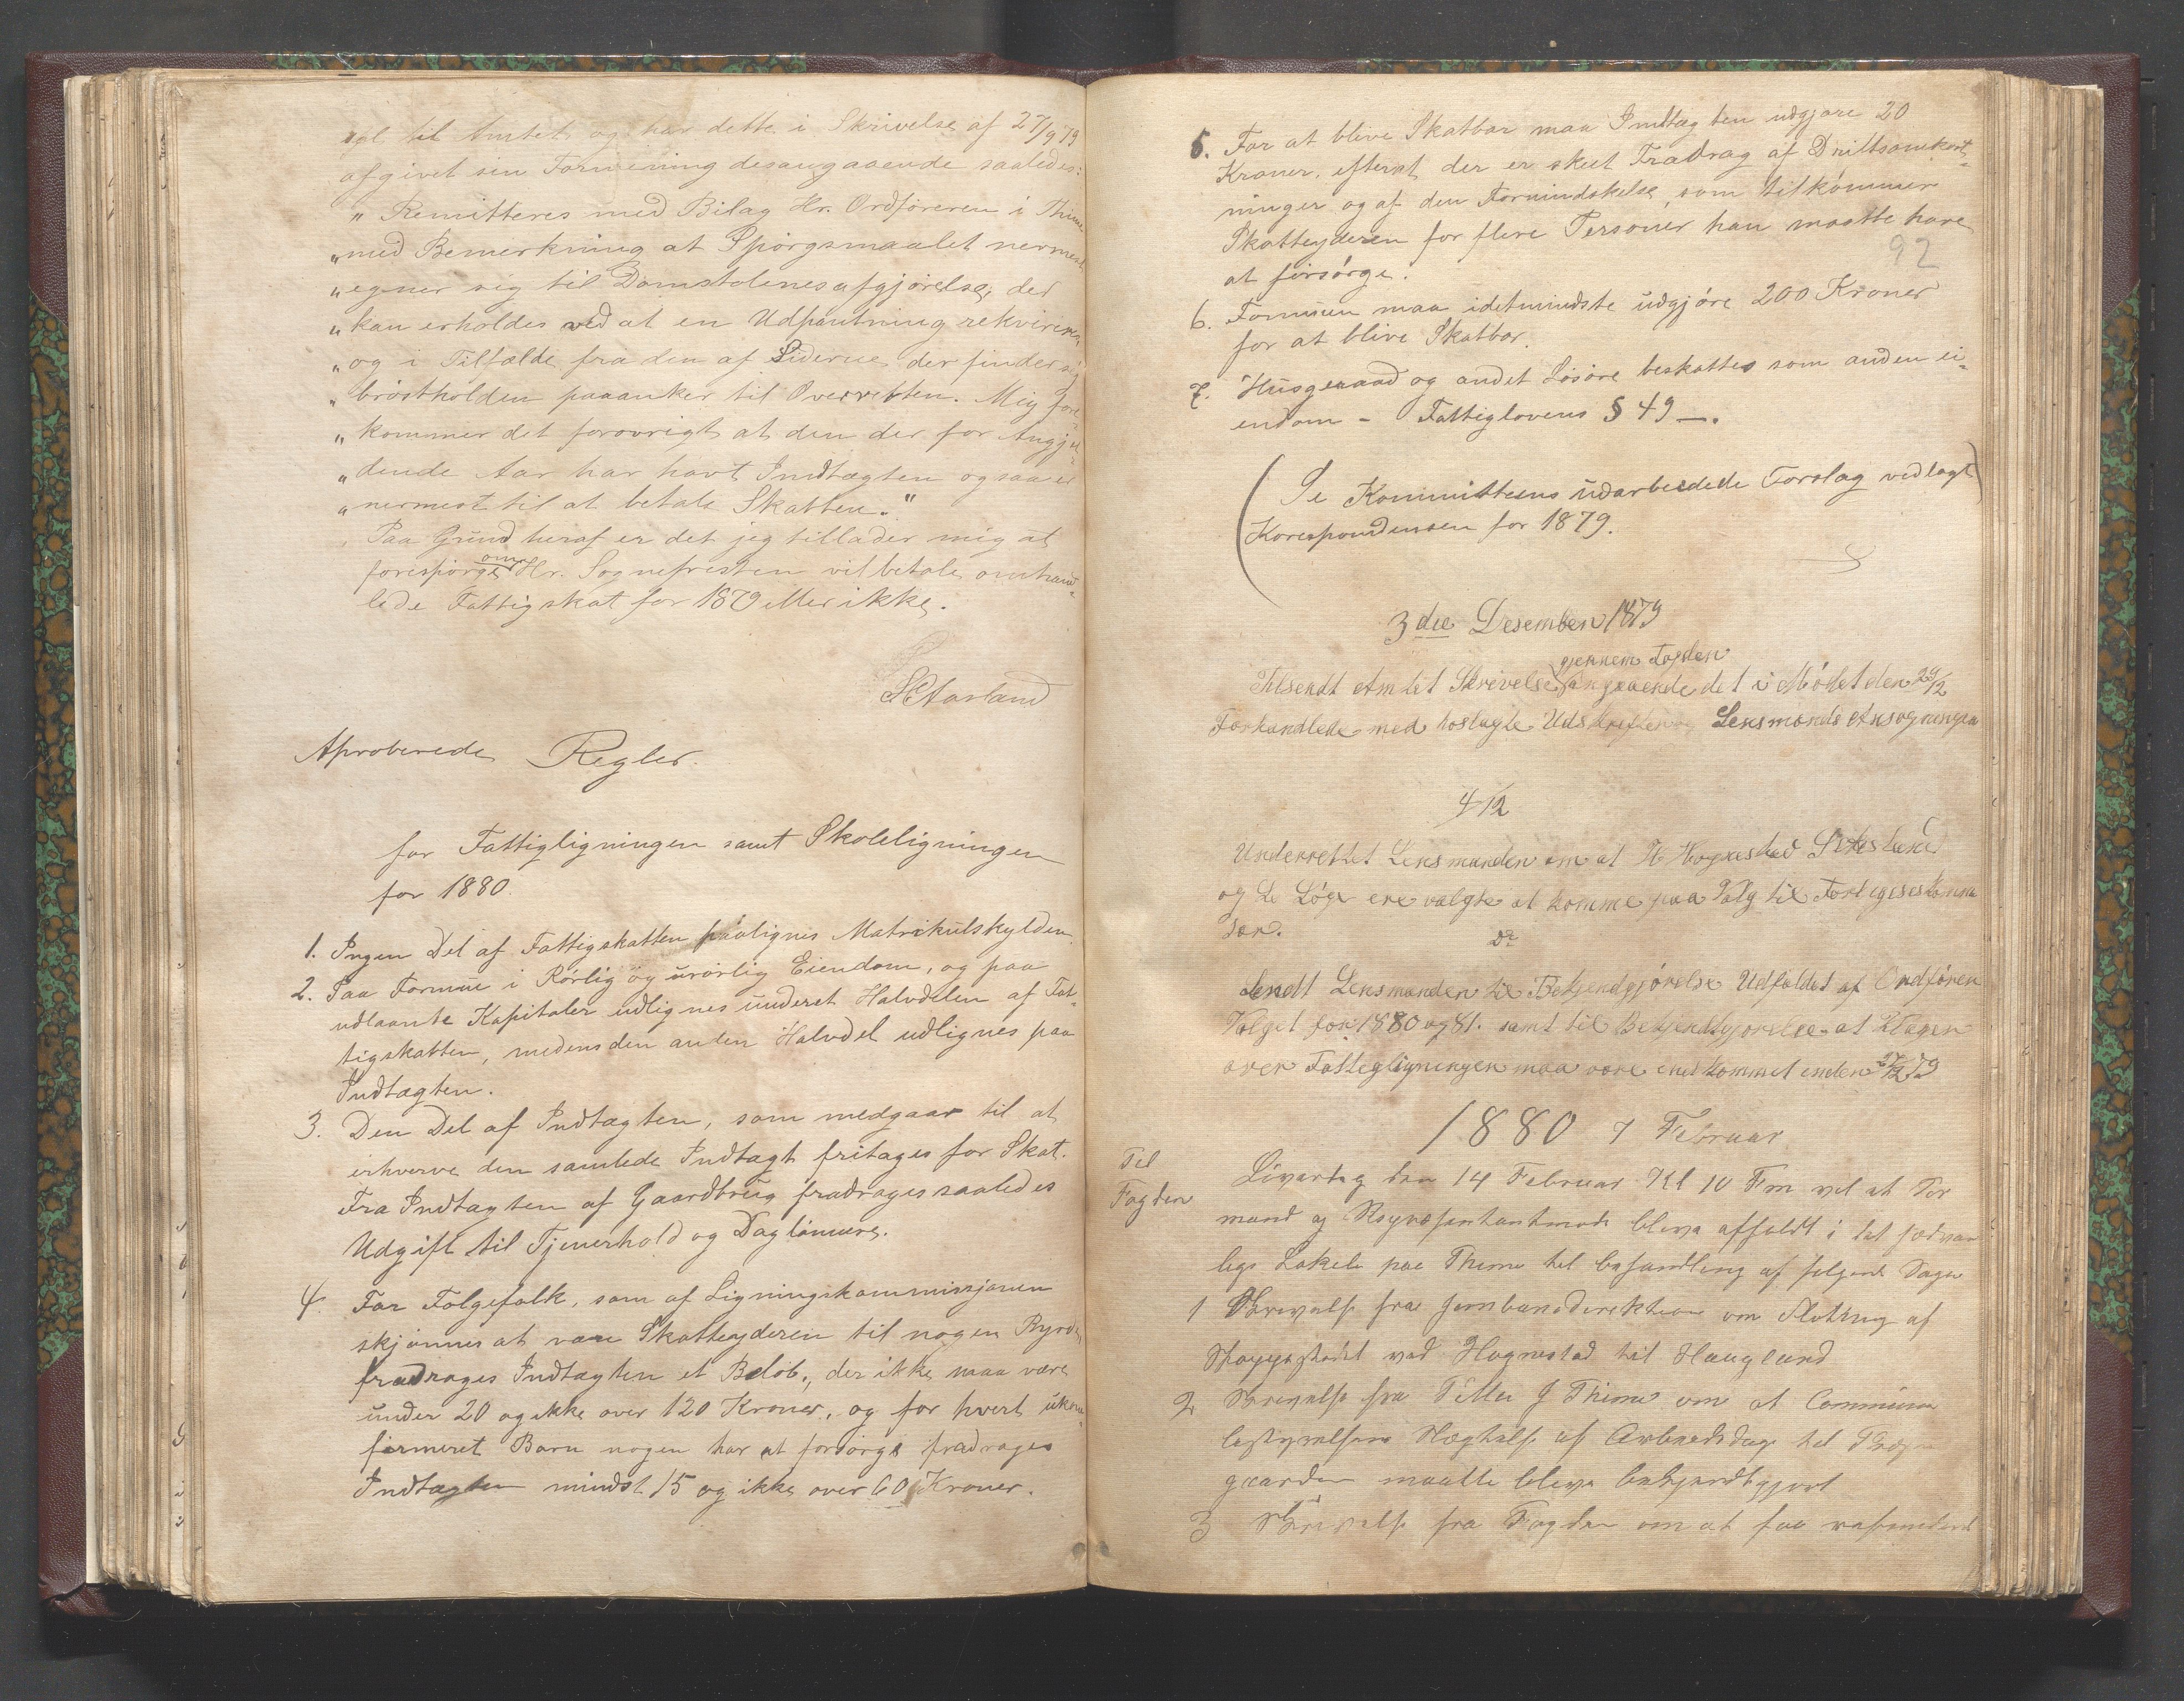 til Amtet og har dette i Skrivelse af 27/9 79
afgivet sin Formening desangaaende saaledes:
„ Remitteres med Bilag Hr. Ordføreren i Thime
„ med Bemerkning at Spørgsmaalet nermest
„ egner sig til Domstolenes afgjørelse, der
„ kan erholdes ved at en Udpantning rekvireres
„ og i Tilfælde fra den af Siderne der finder si
„ brøstholden paaanker til Overretten. Mig fore
„ kommer det forøvrigt at den der for Angjel-
„ dende Aar har havt Indtægten ogsaa er
„ nermest til at betale Skatten."
Paa Grund heraf er det jeg tillader mig at
forespørge om Hr. Sognepresten vil betale omhand-
lede Fattigskat for 1879 eller ikke.
Aarland
Aproberede Regler.
for Fattigligningen samt Skoleligningen
for 1880.
1. Ingen Del af Fattigskatten paalignes Matrikulskylden.
2. Paa Formue i Rørlig og urørlig Eiendom, og paa
udlaante Kapitaler udlignes underet Halvdelen af Fat-
tigskatten, medens den anden Halvdel udlignes paa
Indtægten.
3. Den Del af Indtægten, som medgaar til at
erhverve den samlede Indtægt fritages for Skat.
Fra Indtægten af Gaardbrug fradrages saaledes
Udgift til Tjenerhold og Daglønnere.
4. For Følgefolk, som af Ligningskommissjonen
skjønnes at være Skatteyderen til nogen Byrde
fradrages Indtægten et Beløb, der ikke maa være
under 20 og ikke over 120 Kroner, og for hvert ukon-
firmeret Barn nogen har at forsørge fradrages
Indtægten mindst 15 og ikke over 60 Kroner.
5. For at blive Skatbar maa Indtægten udgjøre 20
Kroner, efterat der er skeet Fradrag af Driftsomkost-
ninger og af den Formindskelse, som tilkommer
Skatteyderen for flere Personer han maatte have
at forsørge.
92
6. Formuen maa idetmindste udgjøre 200 Kroner
for at blive Skatbar.
7. Husgeraad og andet Løsøre beskattes som anden ei-
endom - Fattiglovens § 49 —.
(Se Kommitteens udarbeidede Forslag vedlagt
Korespondensen for 1879.)
3die Desember 1879
gjennem Fogden
Tilsendt Amtet Skrivelse angaaende det i Mødet den 29/12
Forhandlede med hoslagte Udskrifter og Lensmands Ansøgninger
4/12
Underrettet Lensmanden om at H Hognestad
og L Løge ere valgte at komme paa Valg til Forligelseskommis
sær.
Do
Sendt Lensmanden til Bekjendtgjørelse Udfaldet af Ordfører
Valget for 1880 og 81. samt til Bekjendtgjørelse at Klager
over Fattigligningen maa være indkommet inden 27/12 79
1880 7 Februar
Til
Fogden
Løverdag den 14 Februar Kl 10 Fm vil et For
mand og Repræsentantmøde blive afholdt i det sædvan
lige Lokale paa Thime til behandling af følgende Sager
1 Skrivelse fra Jernbanedirektion om Flytning af
Stoppestedet ved Hognestad til Hauglund
2 Skrivelse fra Thime om at Commune
bestyrelsens af Arbeidsdage til
gaarden maatte bleve bekjendtgjort
3 Skrivelse fra Fogden om at faa